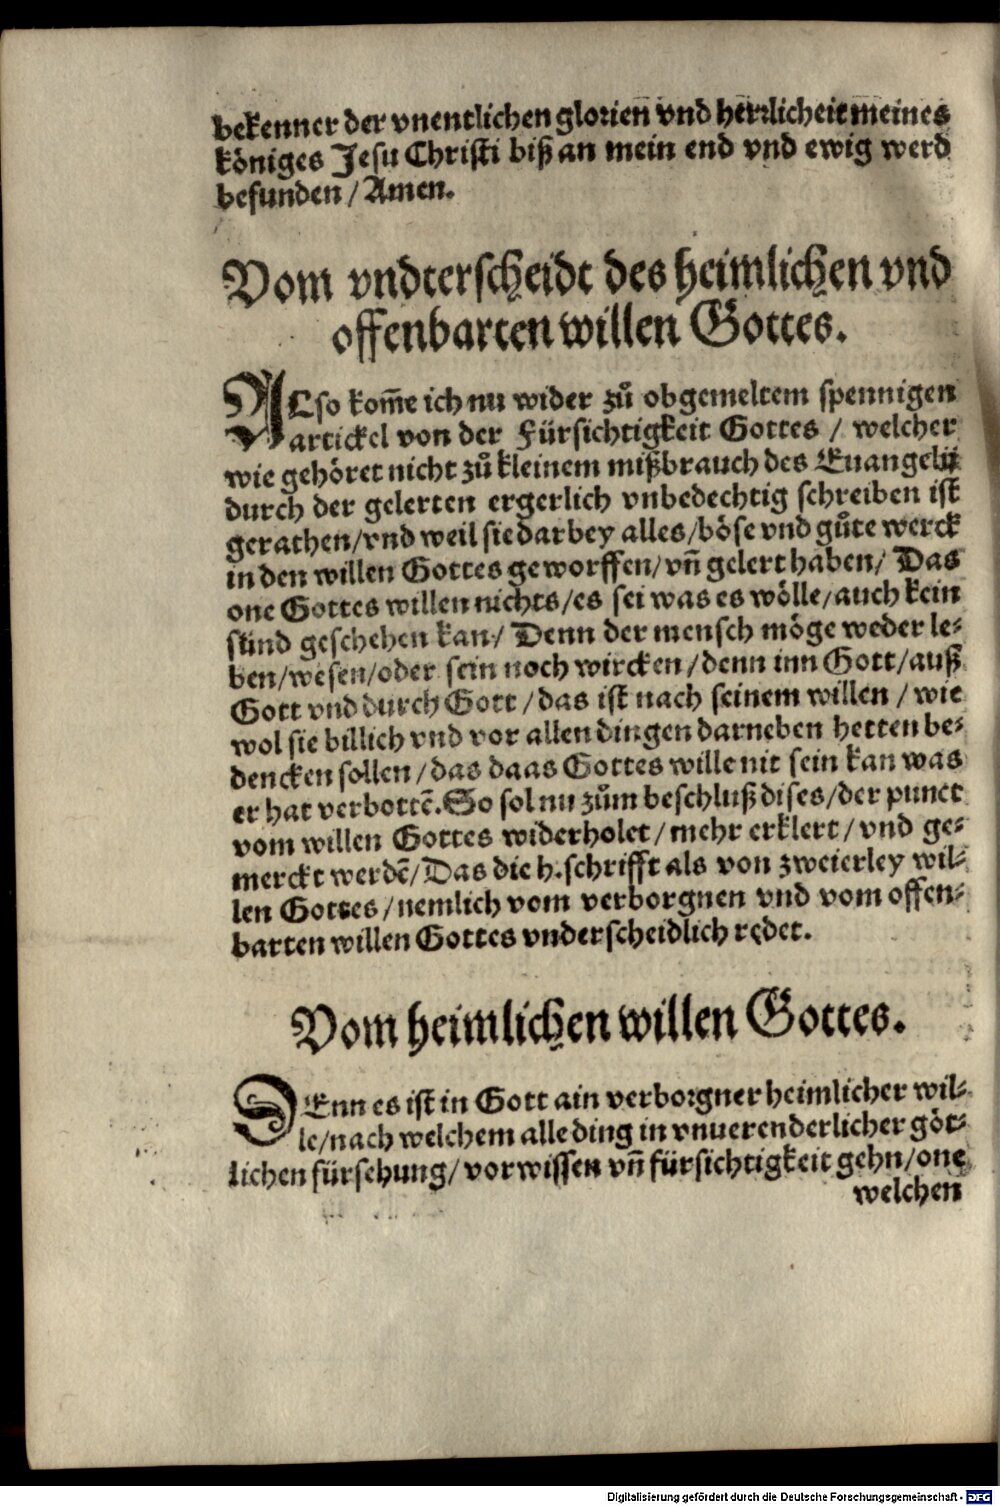 bekenner der vnentlichen glorien vnd herrlicheit meines
königes Jesu Christi biß an mein end vnd ewig werd
befunden / Amen.
Vom vndterscheidt des heimlichen vnd
offenbarten willen Gottes.
ALso kom̄e ich nu wider zů obgemeltem spennigen
artickel von der Fürsichtigkeit Gottes / welcher
wie gehöret nicht zů kleinem mißbrauch des Euangelij
durch der gelerten ergerlich vnbedechtig schreiben ist
gerathen/vnd weil sie darbey alles/böse vnd gůte werck
in den willen Gottes geworffen/vn̄ gelert haben/ Das
one Gottes willen nichts/es sei was es wölle/auch kein
sünd geschehen kan/ Denn der mensch möge weder le-
ben/wesen/oder sein noch wircken/denn inn Gott/auß
Gott vnd durch Gott/das ist nach seinem willen / wie
wol sie billich vnd vor allen dingen darneben hetten be-
dencken sollen/das daas Gottes wille nit sein kan was
er hat verbottē. So sol nu zům beschluß dises/der punct
vom willen Gottes widerholet/mehr erklert/vnd ge-
merckt werdē/Das die h. schrifft als von zweierley wil-
len Gottes/nemlich vom verborgnen vnd vom offen-
barten willen Gottes vnderscheidlich redet.
Vom heimlichen willen Gottes.
DEnn es ist in Gott ain verborgner heimlicher wil-
le/nach welchem alle ding in vnuerenderlicher göt-
lichen fürsehung/vorwissen vn̄ fürsichtigkeit gehn/one
welchen
Digitalisierung gefördert durch die Deutsche Forschungsgemeinschaft - DFG